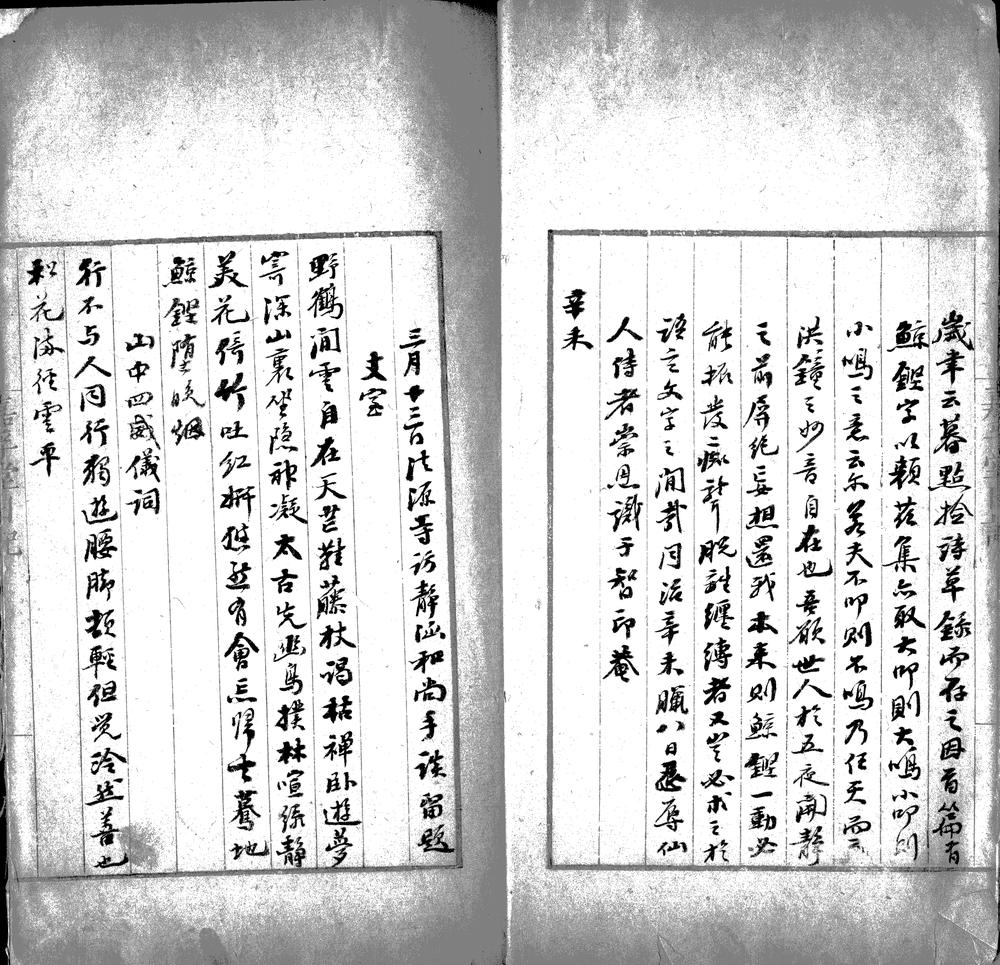 歲聿云暮點撿詩草錄而存之因首篇有
鯨鏗字以顏茲集亦取大叩則大鳴小叩則
小鳴之意云尔若夫不叩則不鳴乃任天而
洪鐘之妙音自在也吾願世人於五夜闃靜
之前屏絕妄想還我本来則鯨鏗一動必
能振發癡聾脫離纏縛者又豈必求之於
語言文字之間哉同治辛未臘八日忍辱仙
人侍者崇恩識于智印菴
辛未
三月廿三日法源寺访靜涵和尚手談留題
丈室
野鶴閒雲自在天芒鞋藤杖謁枯禪卧遊夢
寄深山裏坐隐神凝太古先幽鳥撲林喧繞静
美花倚竹吐红妍 然有會忘歸去驀地
鯨鏗堕晚烟
山中四威儀詞
行不与人同行獨遊腰脚頓輕但觉泠然善也
松花 徑雲平